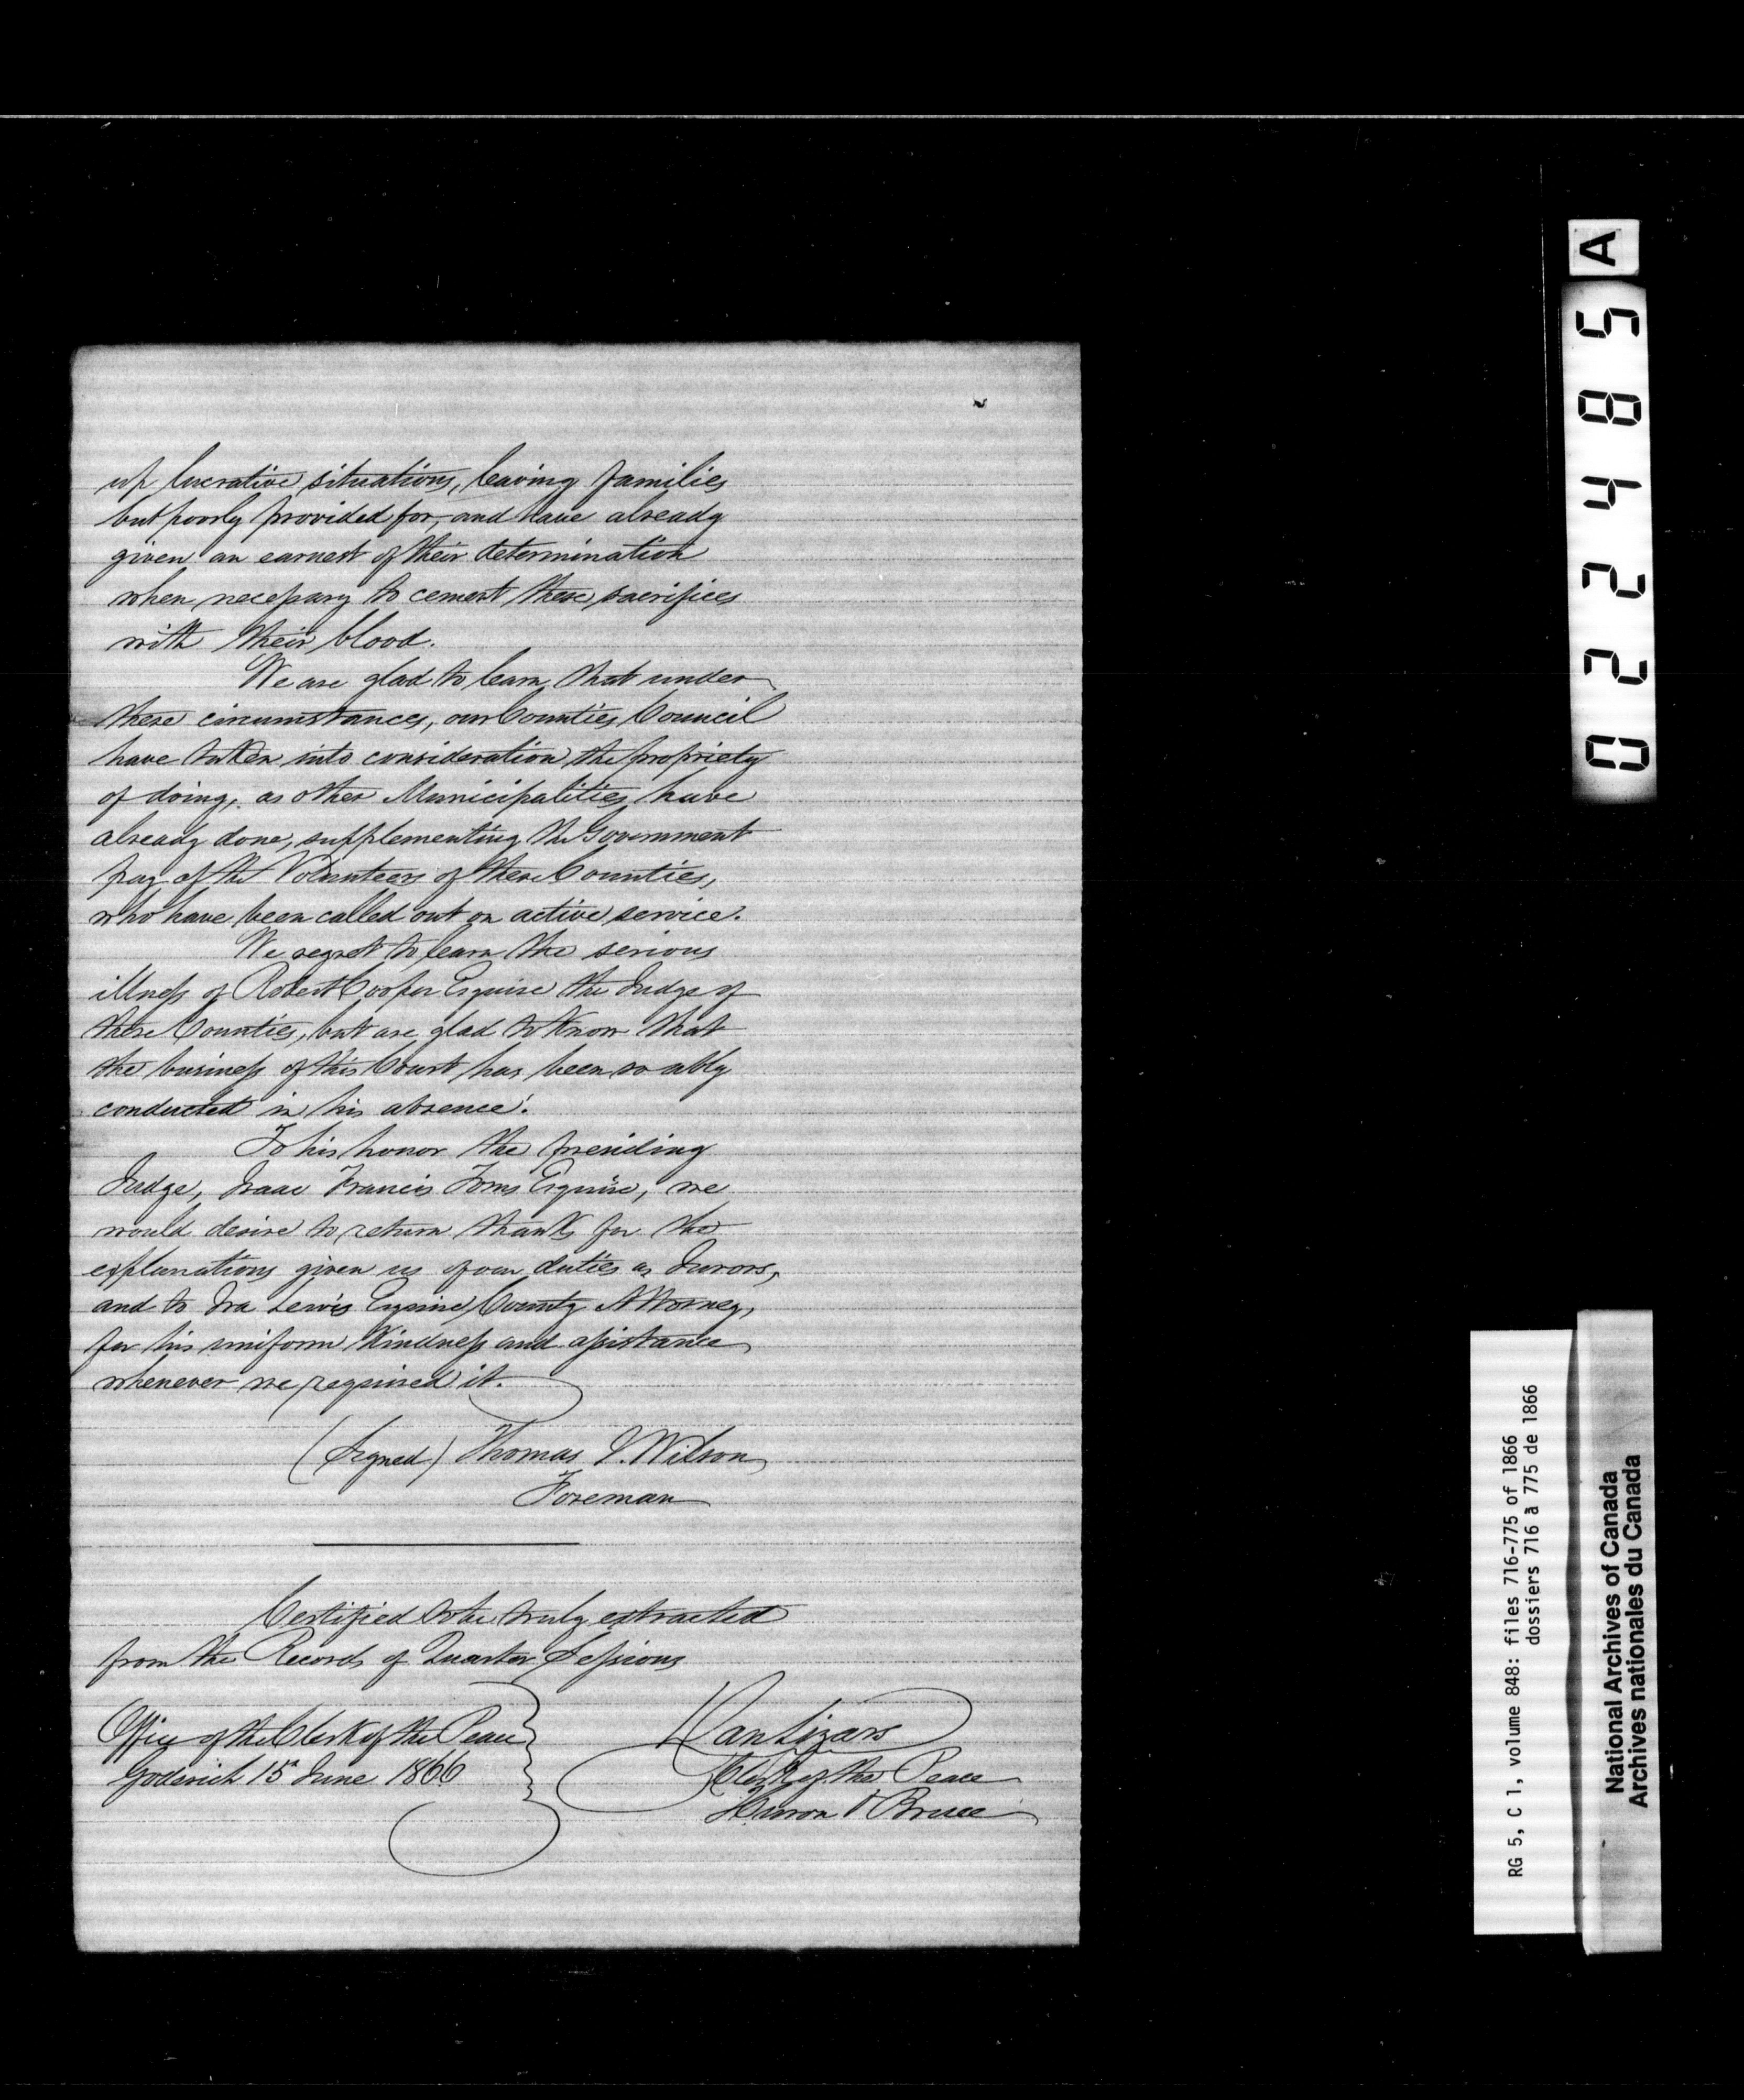 up lucrative situations, leaving families
but poorly provided for, and have already
given an earnest of their determination
when necessary to cement these sacrifices
with their blood.
We are glad to learn that under
these circumstances, our Counties Council
have taken into consideration the propriety
of doing, as other Municipalities have
already done, supplementing the Government
pay of the Volunteers of these Counties,
who have been called out on active service.
We regret to learn the serious
illness of Robert Cooper Esquire the Judge of
these Counties, but are glad to know that
the business of this Court, has been so ably
conducted in his absence.
To his honor the presiding
Judge, Isaac Francis Toms Esquire, we
would desire to return thanks for the
explanations given us of our duties as Jurors,
and to Ira Lewis Esquire, County Attorney,
for his uniform kindness and assistance
whenever we required it.
(Signed) Thomas J. Wilson
Foreman
Certified to be truly extracted
from the Records of Quarter Sessions
Office of the Clerk of the Peace
Goderich 15th June 1866
Dan Lizars
Clerk of the Peace
Huron & Bruce
022485 A
RG 5, C 1, volume 848: files 716-775 of 1866
dossiers 716 à 775 de 1866
National Archives of Canada
Archives nationales du Canada